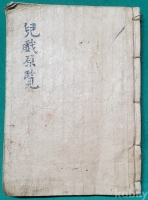 兒戲原覽